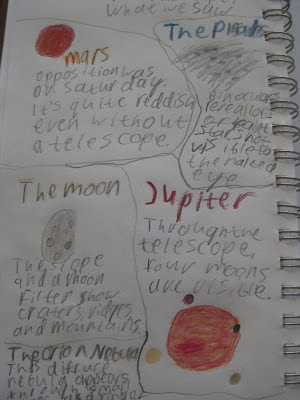 what we saw
mars
opposition was
on saturday.
It's quite reddish
even without
a telescope.
The Pleiades
Binoculars
reveal lots
of faint
stars not
visible to
the naked
eye
The moon
The scope
and moon
filter show
craters, ridges,
and mountains.
Jupiter
Through the
telescope,
four moons
are visible.
The Orion Nebula
This diffuse
nebula appears